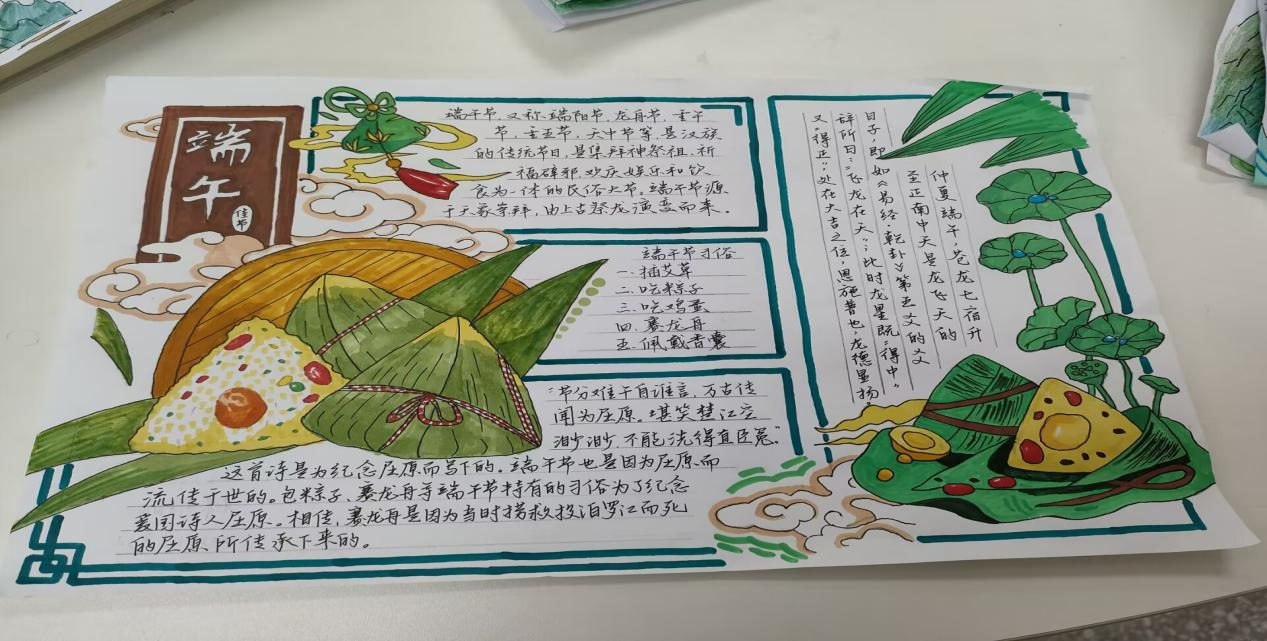 端午
佳节
端午节，又称端阳节，龙舟节，重午
节，重五节，天中节等，是汉族
的传统节日，是集拜神祭祖、祈
福辟邪、欢庆娱乐和饮
食为一体的民俗大节。端午节源
于天象崇拜，由上古祭龙演变而来。
端午节习俗
一．插艾草
二．吃粽子
三．吃鸡蛋
四．赛龙舟
五．佩戴香囊
“节分端午自谁言，万古传
闻为屈原。堪笑楚江空
渺渺，不能洗得直臣冤。”
这首诗是为纪念屈原而写下的。端午节也是因为屈原而
流传于世的。包粽子、赛龙舟等端午节特有的习俗为了纪念
爱国诗人屈原。相传，赛龙舟是因为当时捞救投汨罗江而死
的屈原所传承下来的。
仲夏端午，苍龙七宿升
至正南中天，是龙飞天的
日子，即如《易经·乾卦》第五爻的爻
辞所曰：“飞龙在天”；此时龙星既“得中”
又“得正”，处在大吉之位，恩施普也，龙德显扬。